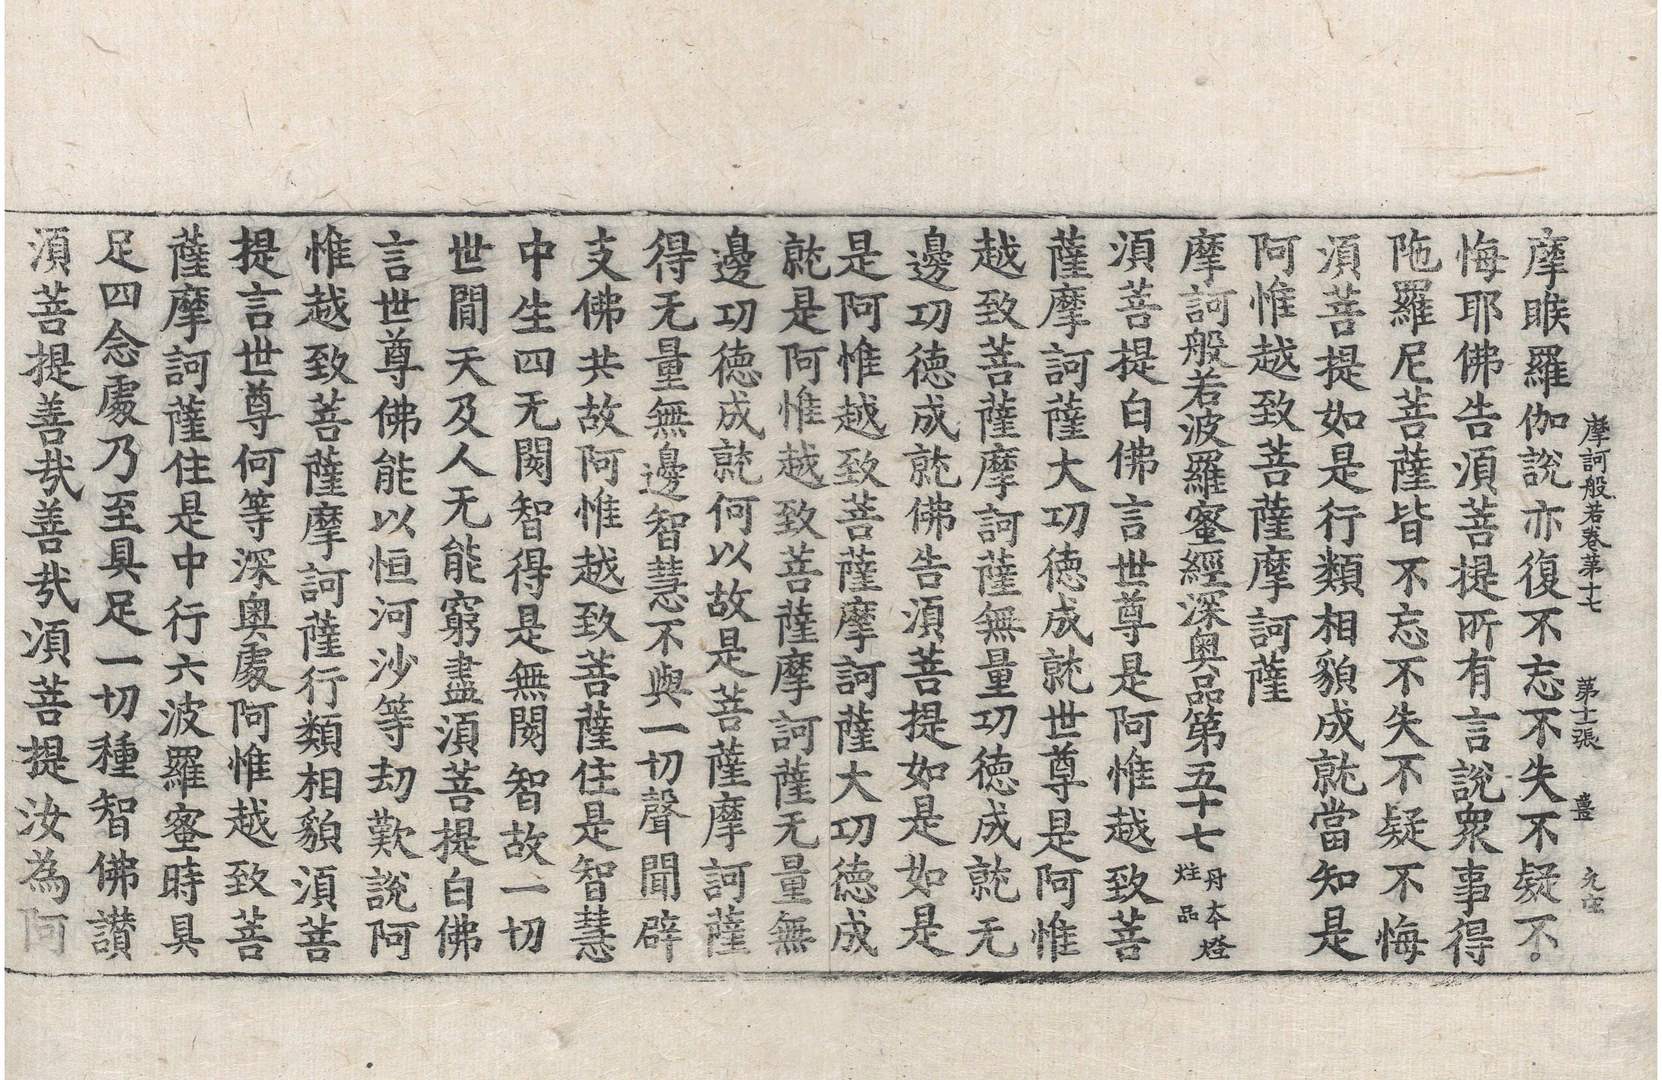 摩訶般若卷第十七　第十二張　薑
摩睺羅伽說亦復不忘不失不疑不
悔耶佛告湏菩提所有言說衆事得
陁羅尼菩薩皆不忘不失不疑不悔
湏菩提如是行類相貌成就當知是
阿惟越致菩薩摩訶薩
摩訶般若波羅蜜經深奥品第五十七 丹本燈炷品
湏菩提白佛言世尊是阿惟越致菩
薩摩訶薩大功德成就世尊是阿惟
越致菩薩摩訶薩無量功德成就无
邊功德成就佛告湏菩提如是如是
是阿惟越致菩薩摩訶薩大功德成
就是阿惟越致菩薩摩訶薩无量無
邊功德成就何以故是菩薩摩訶薩
得无量無邊智慧不與一切聲聞辟
支佛共故阿惟越致菩薩住是智慧
中生四无閡智得是無閡智故一切
世閒天及人无能窮盡湏菩提白佛
言世尊佛能以恒河沙等劫歎說阿
惟越致菩薩摩訶薩行類相貌湏菩
提言世尊何等深奥處阿惟越致菩
薩摩訶薩住是中行六波羅蜜時具
足四念處乃至具足一切種智佛讃
湏菩提善㢤善㢤湏菩提汝為阿